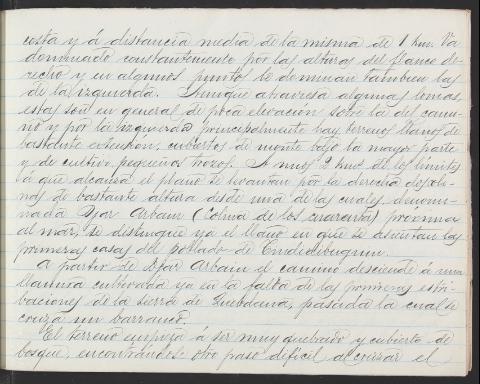 costa y á distancia media de la misma de 1 km. Va
dominado constantemente por las alturas del flanco de-
recho y en algunos puntos le dominan tambien las
de la izquierda. Aunque atraviesa algunas lomas,
estas son en general de poca elevación sobre la del cami-
no y por la izquierda principalmente hay terrenos llanos de
bastante extension, cubiertos de monte bajo la mayor parte
y de cultivo pequeños trozos. A unos 2 kmt. de los limites
á que alcanza el plano se levantan por la derecha
de bastante altura desde una de las cuales denomi-
nada Dyar Arbain (Colina de los cuarenta) proxima
al mar, se distingue ya el llano en que se asientan las
primeras casas del poblado de
A partir de Dyar Arbain el camino desciende á una
llanura cultivada ya en la falda de las primeras estri-
baciones de la sierra de pasada la cual se
cruza un barranco.
El terreno empieza á ser muy quebrado y cubierto de
bosque, encontrandose otro paso dificil al cruzar el